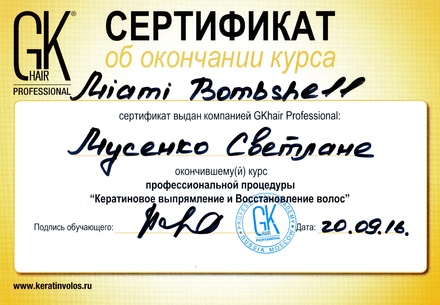 GK®
HAIR
PROFESSIONAL
СЕРТИФИКАТ
об окончании курса
Miami Bombshell
сертификат выдан компанией GKhair Professional:
Мусенко Светлане
окончившему(й) курс
профессиональной процедуры
“Кератиновое выпрямление и Восстановление волос”
Подпись обучающего:
GK
HAIR
PROFESSIONAL
RUSSIA MOSCOW
Дата: 20.09.16.
www.keratinvolos.ru